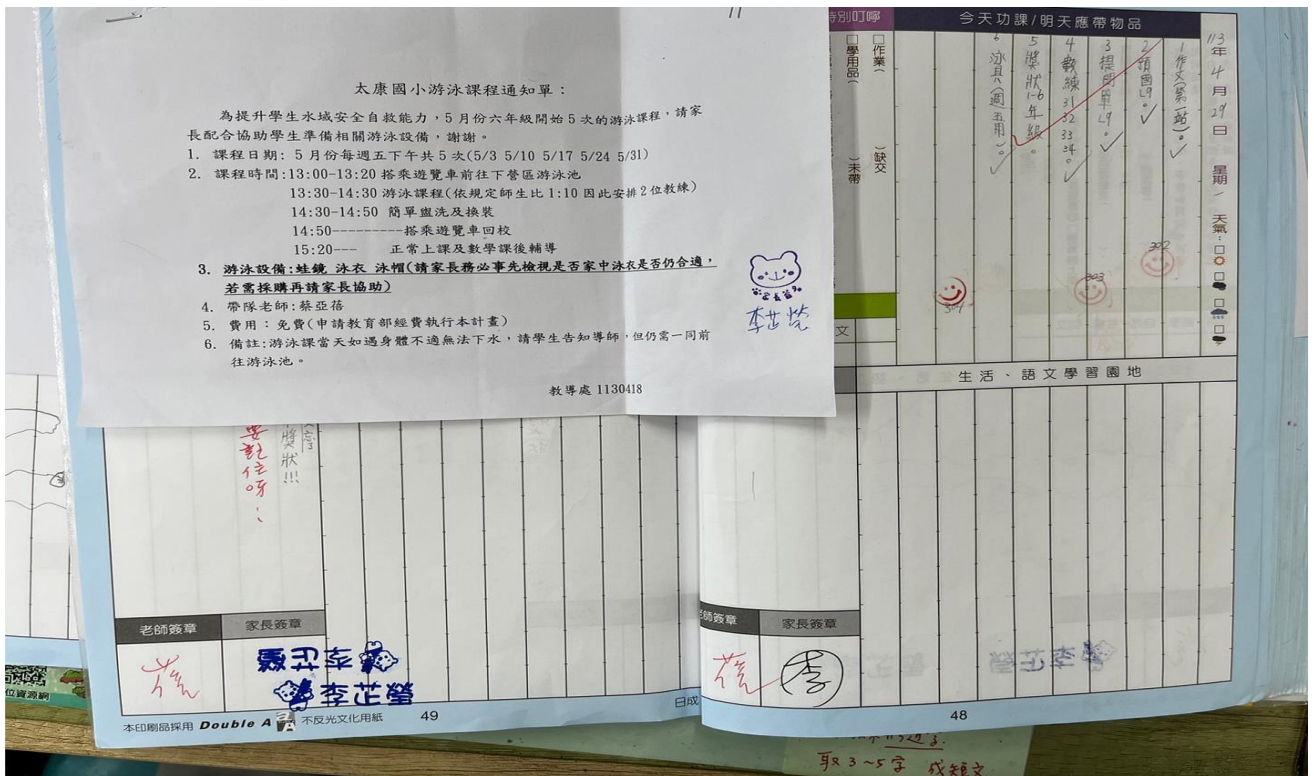 太康國小游泳課程通知單：
為提升學生水域安全自救能力，5月份六年級開始5次的游泳課程，請家
長配合協助學生準備相關游泳設備，謝謝。
1. 課程日期: 5月份每週五下午共5次(5/3 5/10 5/17 5/24 5/31)
2. 課程時間:13:00-13:20 搭乘遊覽車前往下營區游泳池
13:30-14:30 游泳課程(依規定師生比1:10因此安排2位教練)
14:30-14:50 簡單盥洗及換裝
14:50---------搭乘遊覽車回校
15:20--- 正常上課及數學課後輔導
3. 游泳設備:蛙鏡 泳衣 泳帽(請家長務必事先檢視是否家中泳衣是否仍合適，
若需採購再請家長協助)
4. 帶隊老師:蔡亞蓓
5. 費用：免費(申請教育部經費執行本計畫)
6. 備註:游泳課當天如遇身體不適無法下水，請學生告知導師，但仍需一同前
往游泳池。
教導處 1130418
特別叮嚀
今天功課/明天應帶物品
113年4月29日 星期一 天氣：
1作文(第一站)。
2預國L9。
3提國單L9。
4數練31 32 33 34。
5獎狀1-6年級。
6泳具(週五用)。
□作業( )缺交
□學用品( )未帶
302
303
文
生活、語文學習園地
獎狀!!!
要記住呀
老師簽章
家長簽章
蓓
本印刷品採用 Double A 不反光文化用紙
49
日成
老師簽章
家長簽章
蓓
李
48
位資源網
取3~5字 成短文